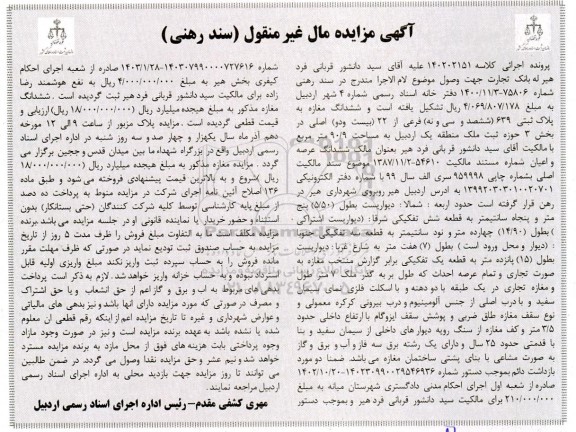 آگهی مزایده مال غیر منقول (سند رهنی)
پرونده اجرائی کلاسه ۱۴۰۲۰۲۱۵۱ علیه آقای سید دانشور قربانی فرد
هیر له بانک تجارت جهت وصول موضوع لازم الاجرا مندرج در سند رهنی
شماره ۷۵۸۰۶-۱۴۰۰/۱۱/۳ دفتر خانه اسناد رسمی شماره ۴ شهر اردبیل
به مبلغ ۴/۰۶۹/۸۰۷/۱۷۸ ریال تشکیل یافته است و ششدانگ مغازه به
پلاک ثبتی ۶۳۹ (ششصد و سی و نه) فرعی از ۲۲ (بیست ودو) اصلی در
بخش ۳ حوزه ثبت ملک منطقه یک اردبیل به مساحت ۱۰/۹ متر مربع
با مالکیت آقای سید دانشور قربانی فرد هیر بعنوان مالک ششدانگ عرصه
و اعیان شماره مستند مالکیت ۵۴۶۱۰-۱۳۸۷/۱۱/۲ موضوع سند مالکیت
اصلی بشماره چاپی ۹۵۹۹۹۸ سری الف سال ۹۹ با شماره دفتر الکترونیکی
به ادرس اردبیل هیر روبروی شهرداری هیر در
رهن قرار گرفته است حدود اربعه : شمالا: دیواریست بطول (۵/۵۰) پنج
متر و پنجاه سانتیمتر به قطعه شش تفکیکی شرقا: (دیواریست اشتراکی
) بطول (۱۴/۹۰) چهارده متر و نود سانتیمتر به قطعه سه تفکیکی جنوبا
: (دیوار و محل ورود است ) بطول (۷) هفت متر به شارع غربا : دیواریست
بطول (۱۵) پانزده متر به قطعه یک تفکیکی برابر گزارش منتخب مغازه به
صورت تجاری و تمام عرصه احداث که طول بر به گذر ۵/۵ متر طول
و مغازه تجاری در یک طبقه با دو دهنه و با اسکلت فلزی نمای سیمان
سفید و با درب اصلی از جنس آلومینیوم و درب بیرونی کرکره معمولی و
نوع سقف مغازه طاق ضربی و پوشش سقف ایزوگام با ارتفاع داخلی حدود
۳/۵ متر و کف مغازه از سنگ رویه دیوار های داخلی از سیمان سفید و بنا
با قدمتی حدود ۲۵ سال و دارای یک رشته برق سه فاز و آب و برق و گاز
به صورت مشاعی با بنای پشتی ساختمان مغازه می باشد. ضمنا دو مورد
بازداشت دائم بموجب دستور شماره ۱۴۰۲۳۰۹۹۰۰۲۹۵۴۶۹۳۶-۱۴۰۲/۱۰/۲۰
صادره از شعبه اول اجرای احکام مدنی دادگستری شهرستان میانه به مبلغ
۲۱۰/۰۰۰/۰۰۰ ریال برای مالکیت سید دانشور قربانی فرد هیر و بموجب دستور
شماره ۱۴۰۳۰۷۹۹۰۰۰۰۷۲۷۶۱۶-۱۴۰۳/۱/۲۸ صادره از شعبه اجرای احکام
کیفری بخش هیر به مبلغ ۴/۰۰۰/۰۰۰/۰۰۰ ریال به نفع هوشمند رضا
زاده برای مالکیت سید دانشور قربانی فرد هیر ثبت گردیده است . ششدانگ
مغازه مذکور به مبلغ هیجده میلیارد ریال (۱۸/۰۰۰/۰۰۰/۰۰۰ ریال) ارزیابی و
قیمت قطعی گردیده است . مزایده پلاک مزبور از ساعت ۹ الی ۱۲ مورخه
دهم آذر ماه سال یکهزار و چهار صدو سه روز شنبه در اداره اجرای اسناد
رسمی اردبیل واقع در بزرگراه شهداء ما بین میدان قدس و ججین برگزار می
گردد . مزایده مغازه مذکور به مبلغ هیجده میلیارد ریال (۱۸/۰۰۰/۰۰۰/۰۰۰
ریال) شروع و به بالاترین قیمت پیشنهادی فروخته می شود و طبق ماده
۱۳۶ اصلاح آئین نامه اجرای شرکت در مزایده منوط به پرداخت ده درصد
از مبلغ پایه کارشناسی توسط کلیه شرکت کنندگان (حتی بستانکار) بدون
استثناء و حضور خریدار یا نماینده قانونی او در جلسه مزایده می باشد برنده
مزایده مکلف است ما به التفاوت مبلغ فروش را ظرف مدت ۵ روز از تاریخ
مزایده به حساب صندوق ثبت تودیع نماید در صورتی که ظرف مهلت مقرر
مانده فروش را به حساب سپرده ثبت واریز نکند مبلغ واریزی اولیه قابل
استرداد نبوده و به حساب خزانه واریز خواهد شد. لازم به ذکر است پرداخت
بدهی های مربوط به آب و برق و گاز اعم از حق انشعاب و یا حق اشتراک
و مصرف در صورتی که مورد مزایده دارای انها باشد و نیز بدهی های مالیاتی
و عوارض شهرداری و غیره تا تاریخ مزایده اعم از اینکه رقم قطعی ان معلوم
شده یا نشده باشد به عهده برنده مزایده است و نیز در صورت وجود مازاد
وجوه پرداختی بابت هزینه های فوق از محل مازاد به برنده مزایده مسترد
خواهد شد و نیم عشر و حق مزایده نقدا وصول می گردد. در ضمن طالبین
می توانند تا روز مزایده جهت بازدید محلی به اداره اجرای اسناد رسمی
اردبیل مراجعه نمایند.
مهری کشفی مقدم–رئیس اداره اجرای اسناد رسمی اردبیل